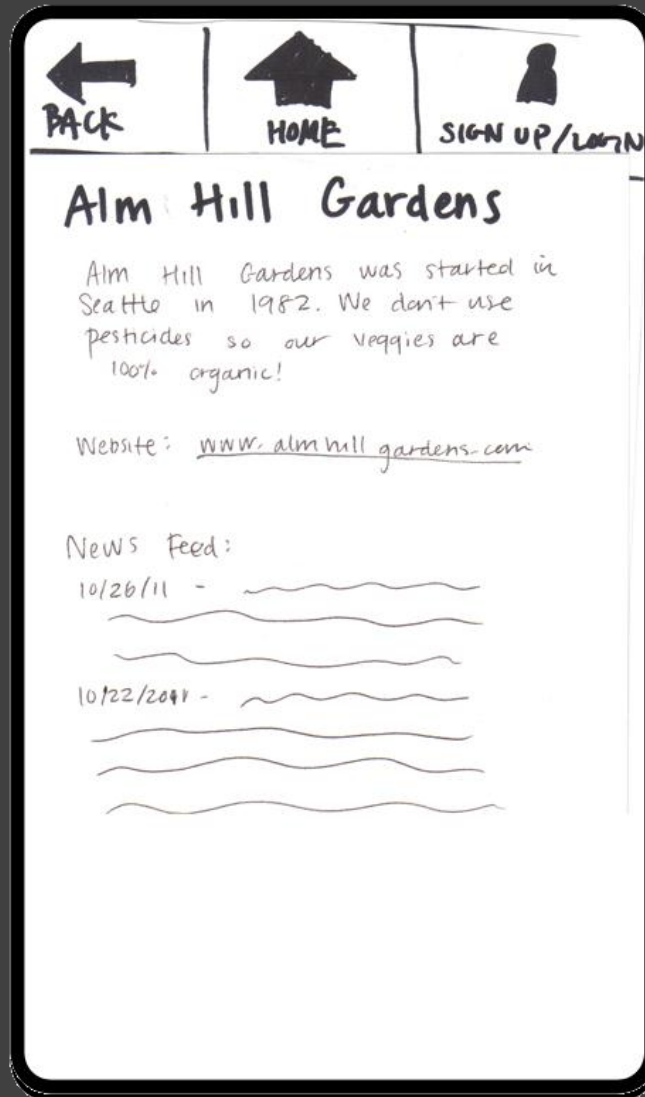 BACK
HOME
SIGN UP/LOGIN
Alm Hill Gardens
Alm Hill Gardens was started in
Seattle in 1982. We don't use
pesticides so our veggies are
100% organic!
Website: www.almhillgardens.com
News Feed:
10/26/11 -
10/22/2011 -